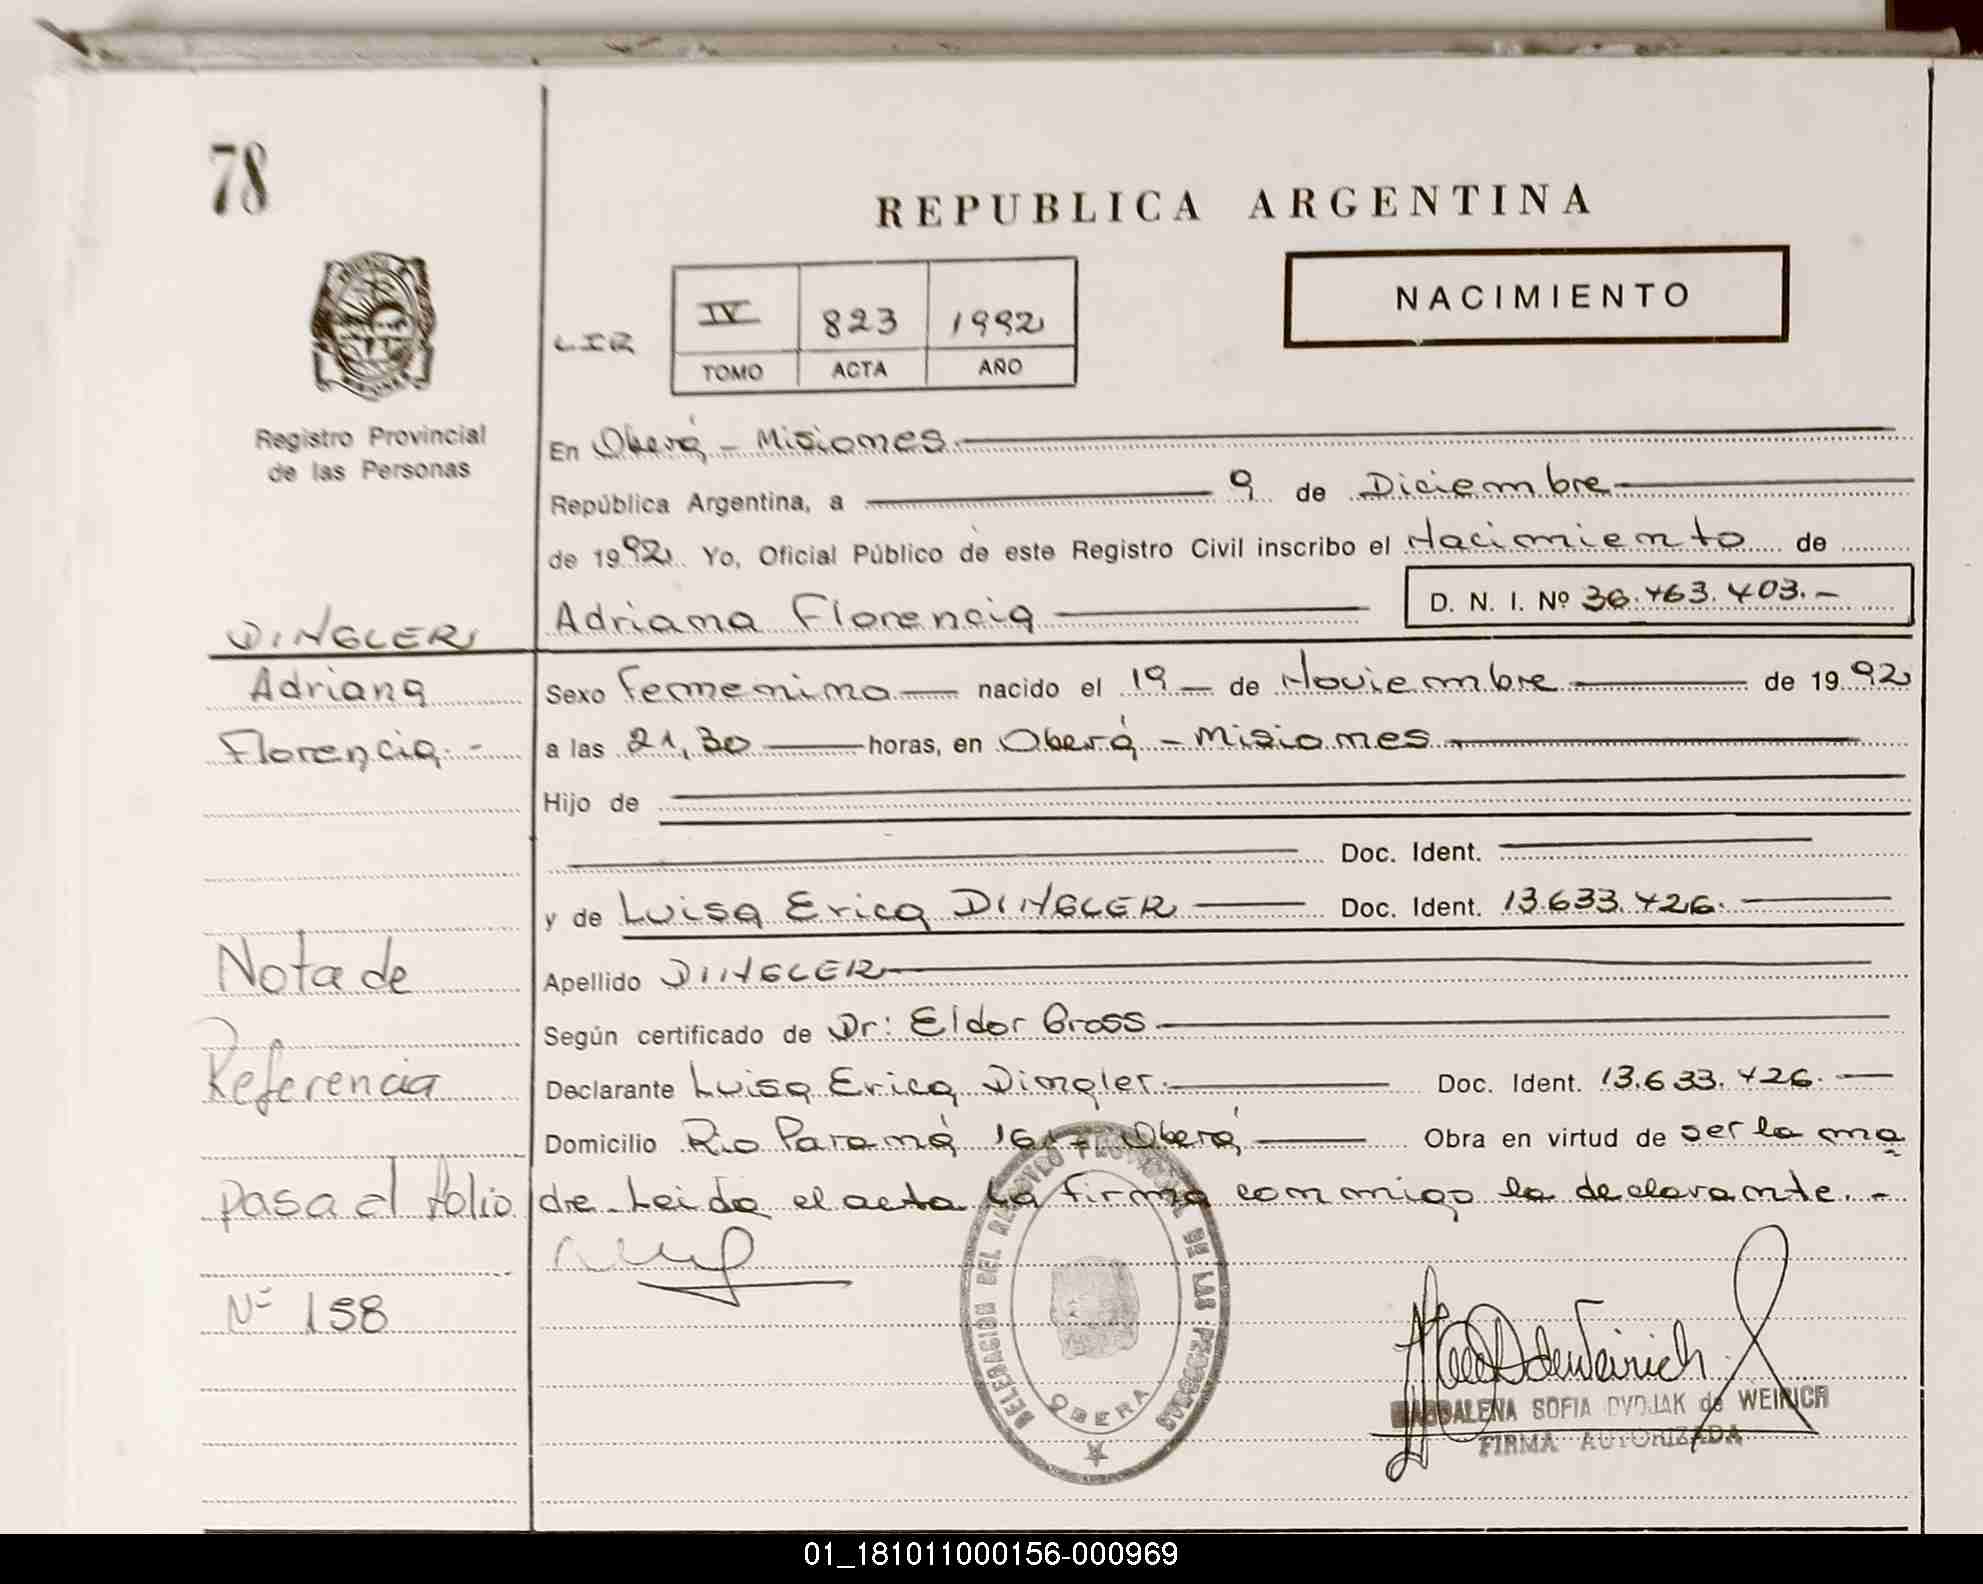 78
REPUBLICA ARGENTINA
NACIMIENTO
IV 823 1992
TOMO ACTA AÑO
Registro Provincial
de las Personas
En Oberá - Misiones.
República Argentina, a 9 de Diciembre
de 1992. Yo, Oficial Público de este Registro Civil inscribo el Nacimiento de
Adriana Florencia D. N. I. Nº 36.463.403.-
DINGLER
Adriana
Florencia.-
Sexo Femenino nacido el 19 de Noviembre de 1992
a las 21,30 horas, en Oberá - Misiones
Hijo de
Doc. Ident.
y de Luisa Erica DINGLER Doc. Ident. 13.633.426.
Apellido DINGLER
Según certificado de Dr: Eldor Gross
Declarante Luisa Erica Dingler. Doc. Ident. 13.633.426.
Domicilio Rio Paraná Oberá Obra en virtud de ser la ma
dre. Leida el acta la firma conmigo la declarante.-
Nota de
Referencia
pasa al folio
Nº 158
DELEGACION DEL REGISTRO PROVINCIAL DE LAS PERSONAS
OBERA
MAGDALENA SOFIA DVOJAK de WEIRICH
FIRMA AUTORIZADA
01_181011000156-000969